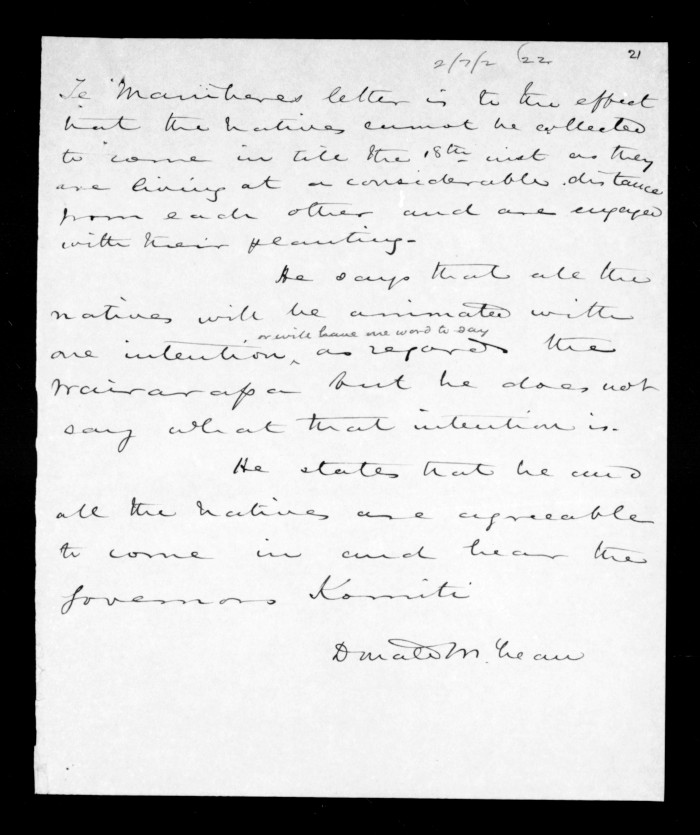 2/7/2 22 21
Te Maniheras letter is to the effect
that the Natives cannot be collected
to come in till the 18th inst as they
are living at a considerable distance
from each other and are engaged
with their planting -
He says that all the
natives will be animated with
or will have one word to say
one intention, ^ as regards the
Wairarapa but he does not
say what that intention is.
He states that he and
all the Natives are agreeable
to come in and hear the
Governors Komiti
Donald McLean